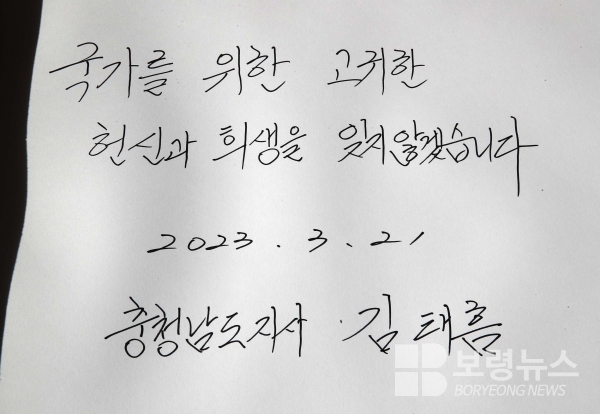 국가를 위한 고귀한
헌신과 희생을 잊지않겠습니다
2023. 3. 21
충청남도지사 김태흠
보령뉴스
BORYEONG NEWS